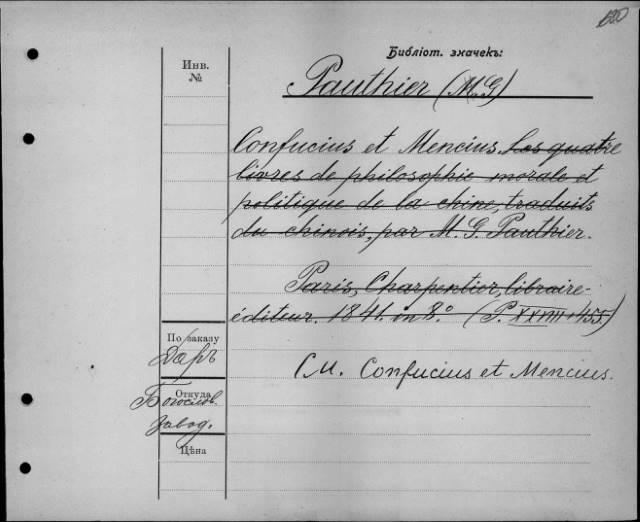 120
Библіот. значекъ:
Инв.
№
Pauthier (M. G)
Confucius et Mencius. Les quatre
livres de philosophie morale et
politique de la chine, traduits
du chinois, par M. G. Pauthier.
Paris, Charpentier, libraire-
éditeur. 1841. in 8.° (P. XXVIII+455.)
По заказу
Даръ
См. Confucius et Mencius.
Откуда
Богослов.
Завод.
Цѣна